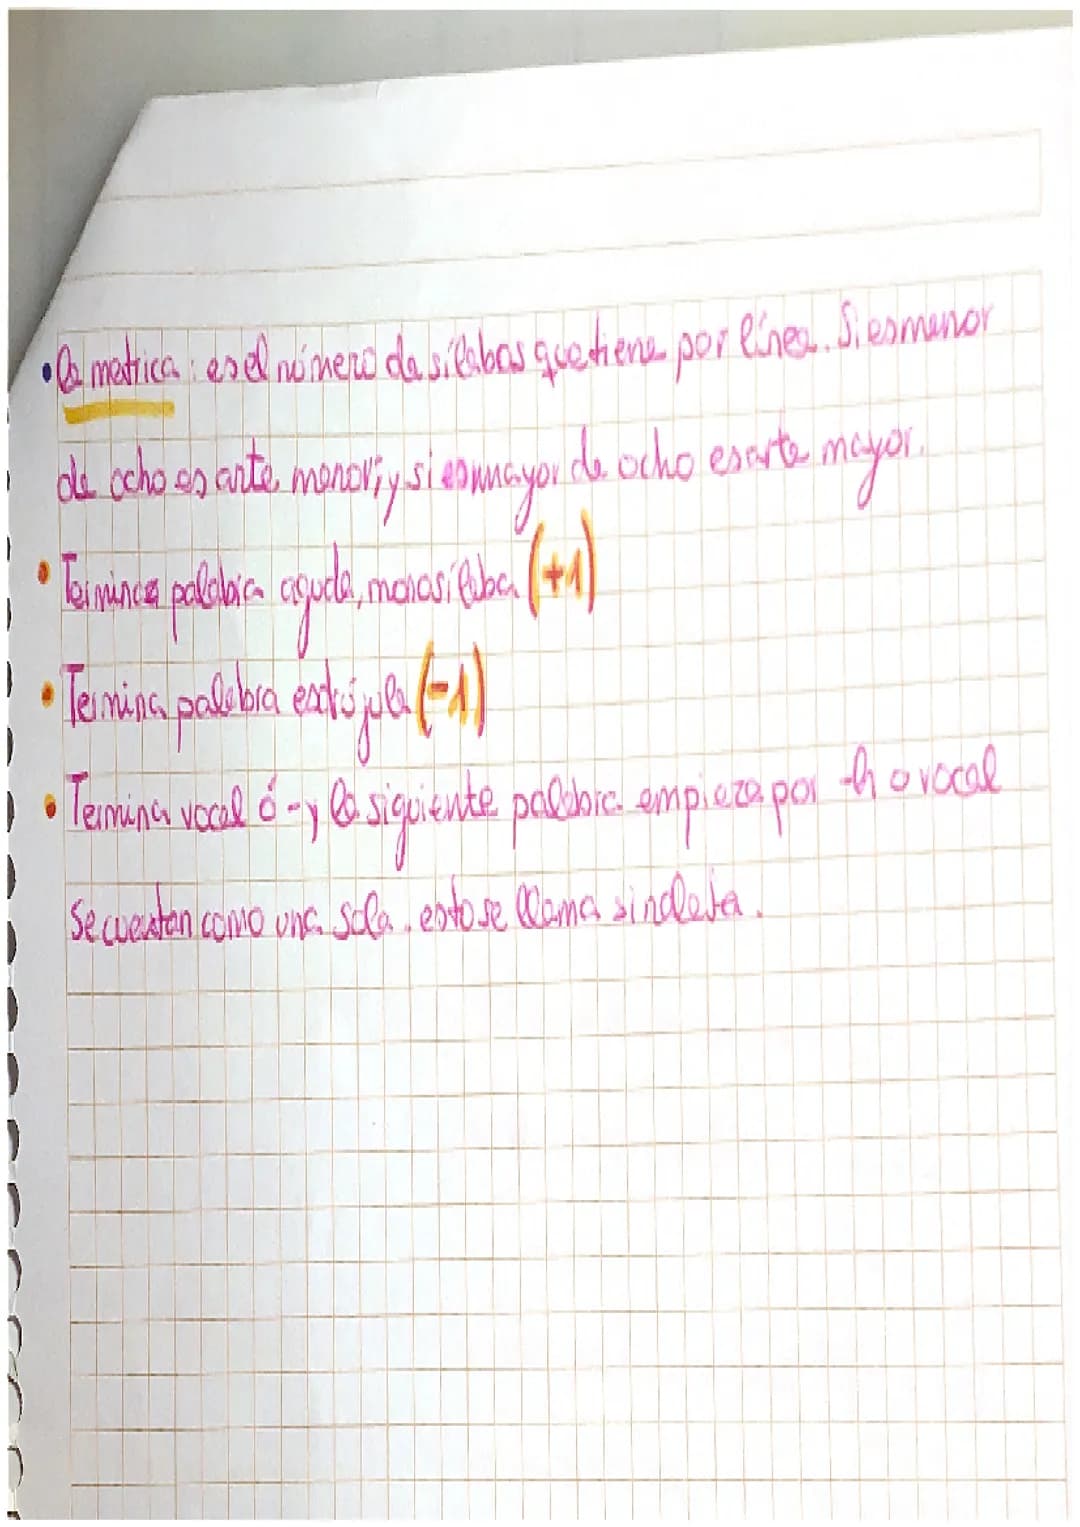 • La metrica: es el número de sílabas que tiene por línea. Si es menor
de ocho es arte menor; y si es mayor de ocho es arte mayor.
• Termina palabra aguda, monosílaba (+1)
• Termina palabra esdrújula (-1)
• Termina vocal ó -y la siguiente palabra empieza por -h o vocal
Se cuentan como una sola. esto se llama sinalefa.